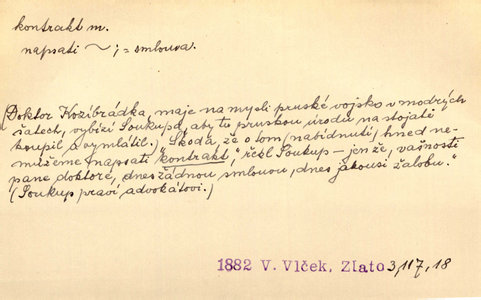 kontrakt m.
napsati ~ ; = smlouva.
(Doktor Kozibrádka, maje na mysli pruské vojsko v modrých
šatech, vybízí Soukupa, aby tu pruskou úrodu na stojatě
koupil a vymlátil.) "Škoda, že o tom (nabídnutí) hned ne-
můžeme napsati kontrakt," řekl Soukup — jen že, vašnosti
pane doktore, dnes žádnou smlouvu, dnes jakousi žalobu."
(Soukup praví advokátovi.)
1882 V. Vlček, Zlato 3, 117, 18